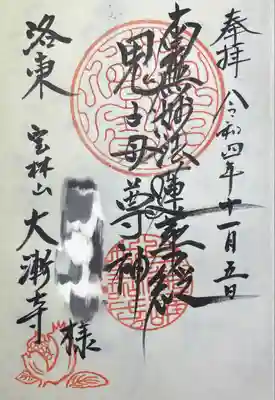 奉拝 令和四年十一月五日
南無妙法蓮華経
鬼子母尊神
様
洛東 雲林山 大漸寺